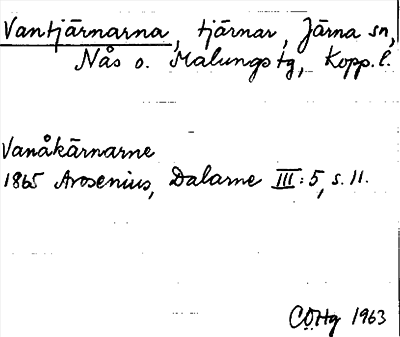 Vantjärnarna, tjärnar, Järna sn,
Nås o. Malungs tg, Kopp. l.
Vanåkärnarne
1865 Arosenius, Dalarne III:5, s. 11.
CÖHg 1963